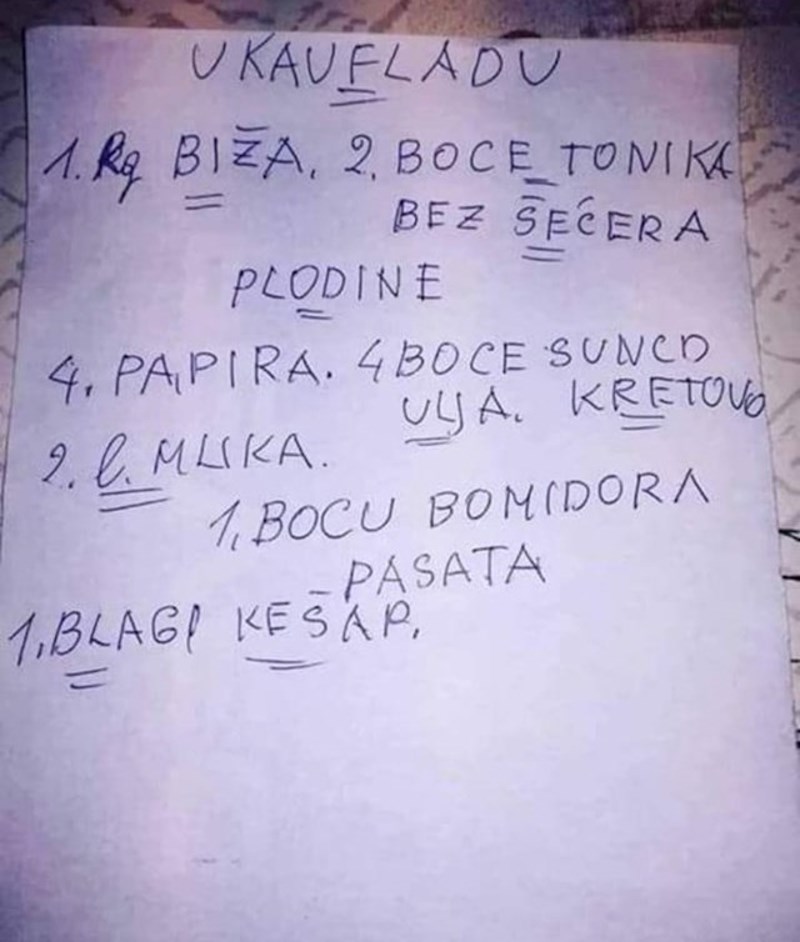 U KAUFLADU
1. Kg BIŽA. 2. BOCE TONIKA
BEZ ŠEĆERA
PLODINE
4. PAPIRA. 4 BOCE SUNCO
ULJA. KRETOVO
2. l. MLIKA.
1. BOCU BOMIDORA
PASATA
1. BLAGI KEŠAP.